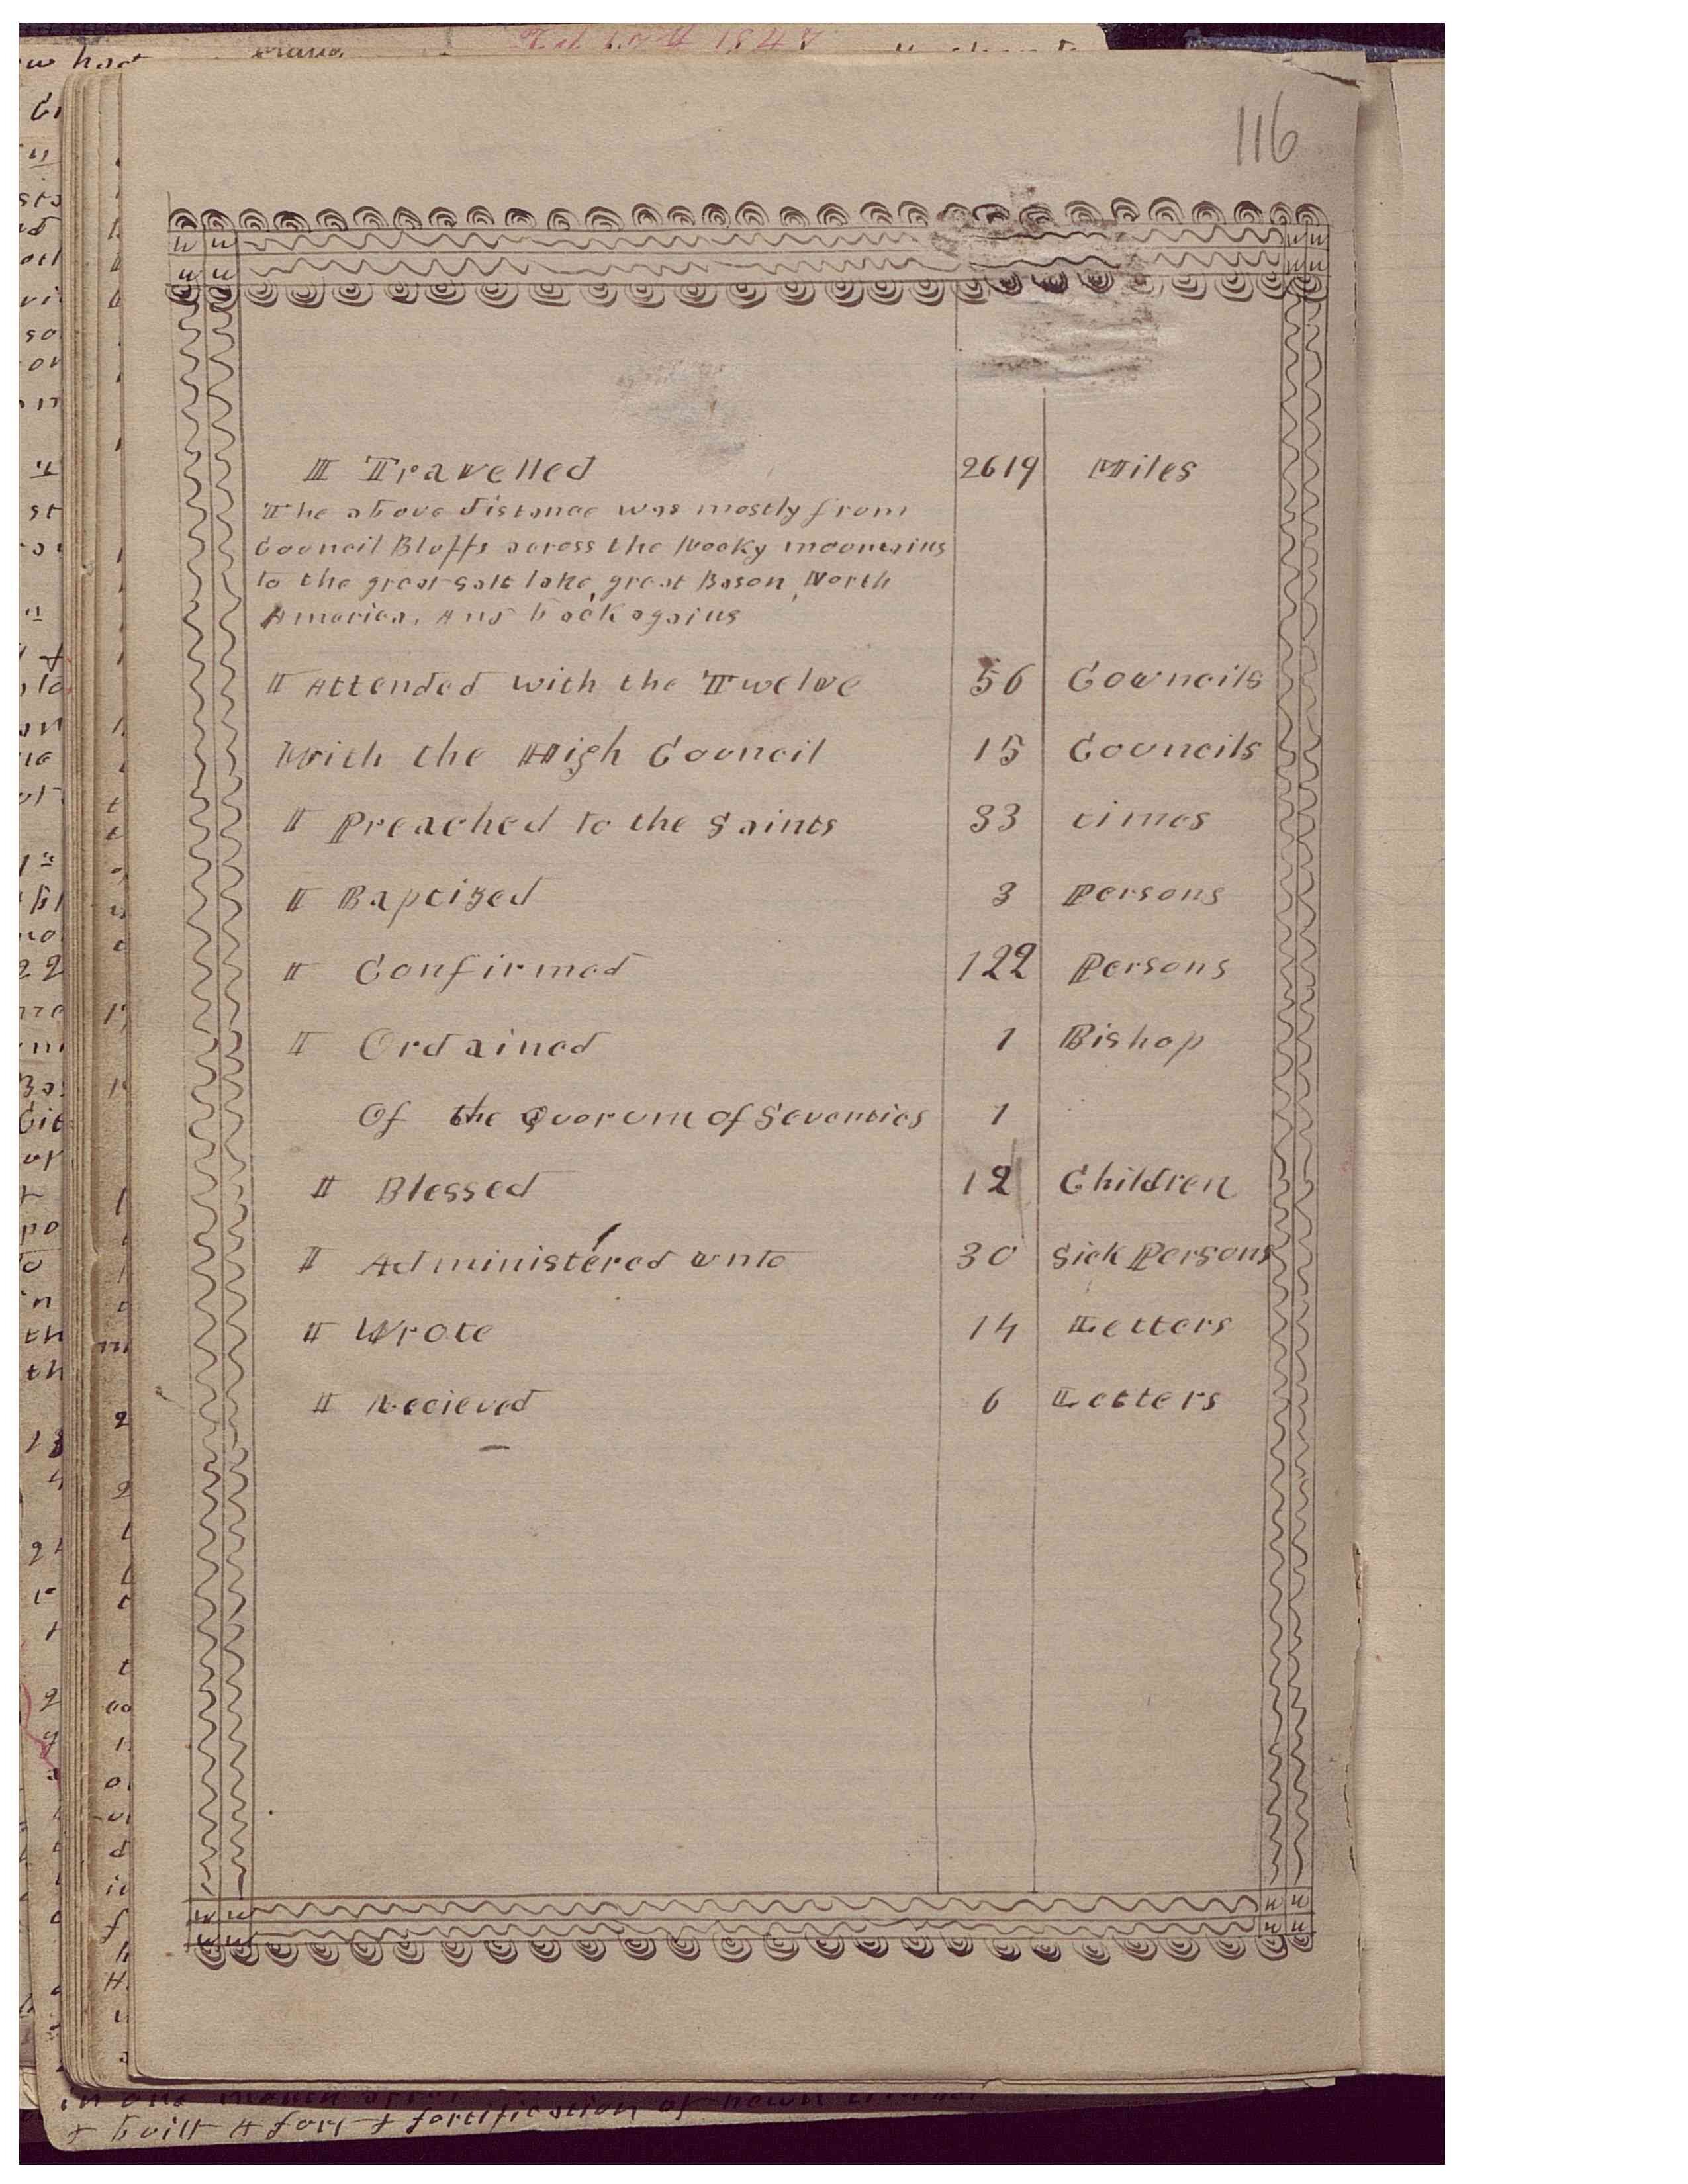 116
I Travelled 2619 Miles
The above distance was mostly from
Council Bluffs across the Rocky mountains
to the great Salt lake, great Bason, North
America. And back agains
I Attended with the Twelve 56 Councils
With the High Council 15 Councils
I Preached to the Saints 33 times
I Baptized 3 Persons
I Confirmed 122 Persons
I Ordained 1 Bishop
Of the Quorum of Seventies 1
I Blessed 12 Children
I Administered unto 30 Sick Persons
I Wrote 14 Letters
I Recieved 6 Letters
& built A fort & fortification of hewn